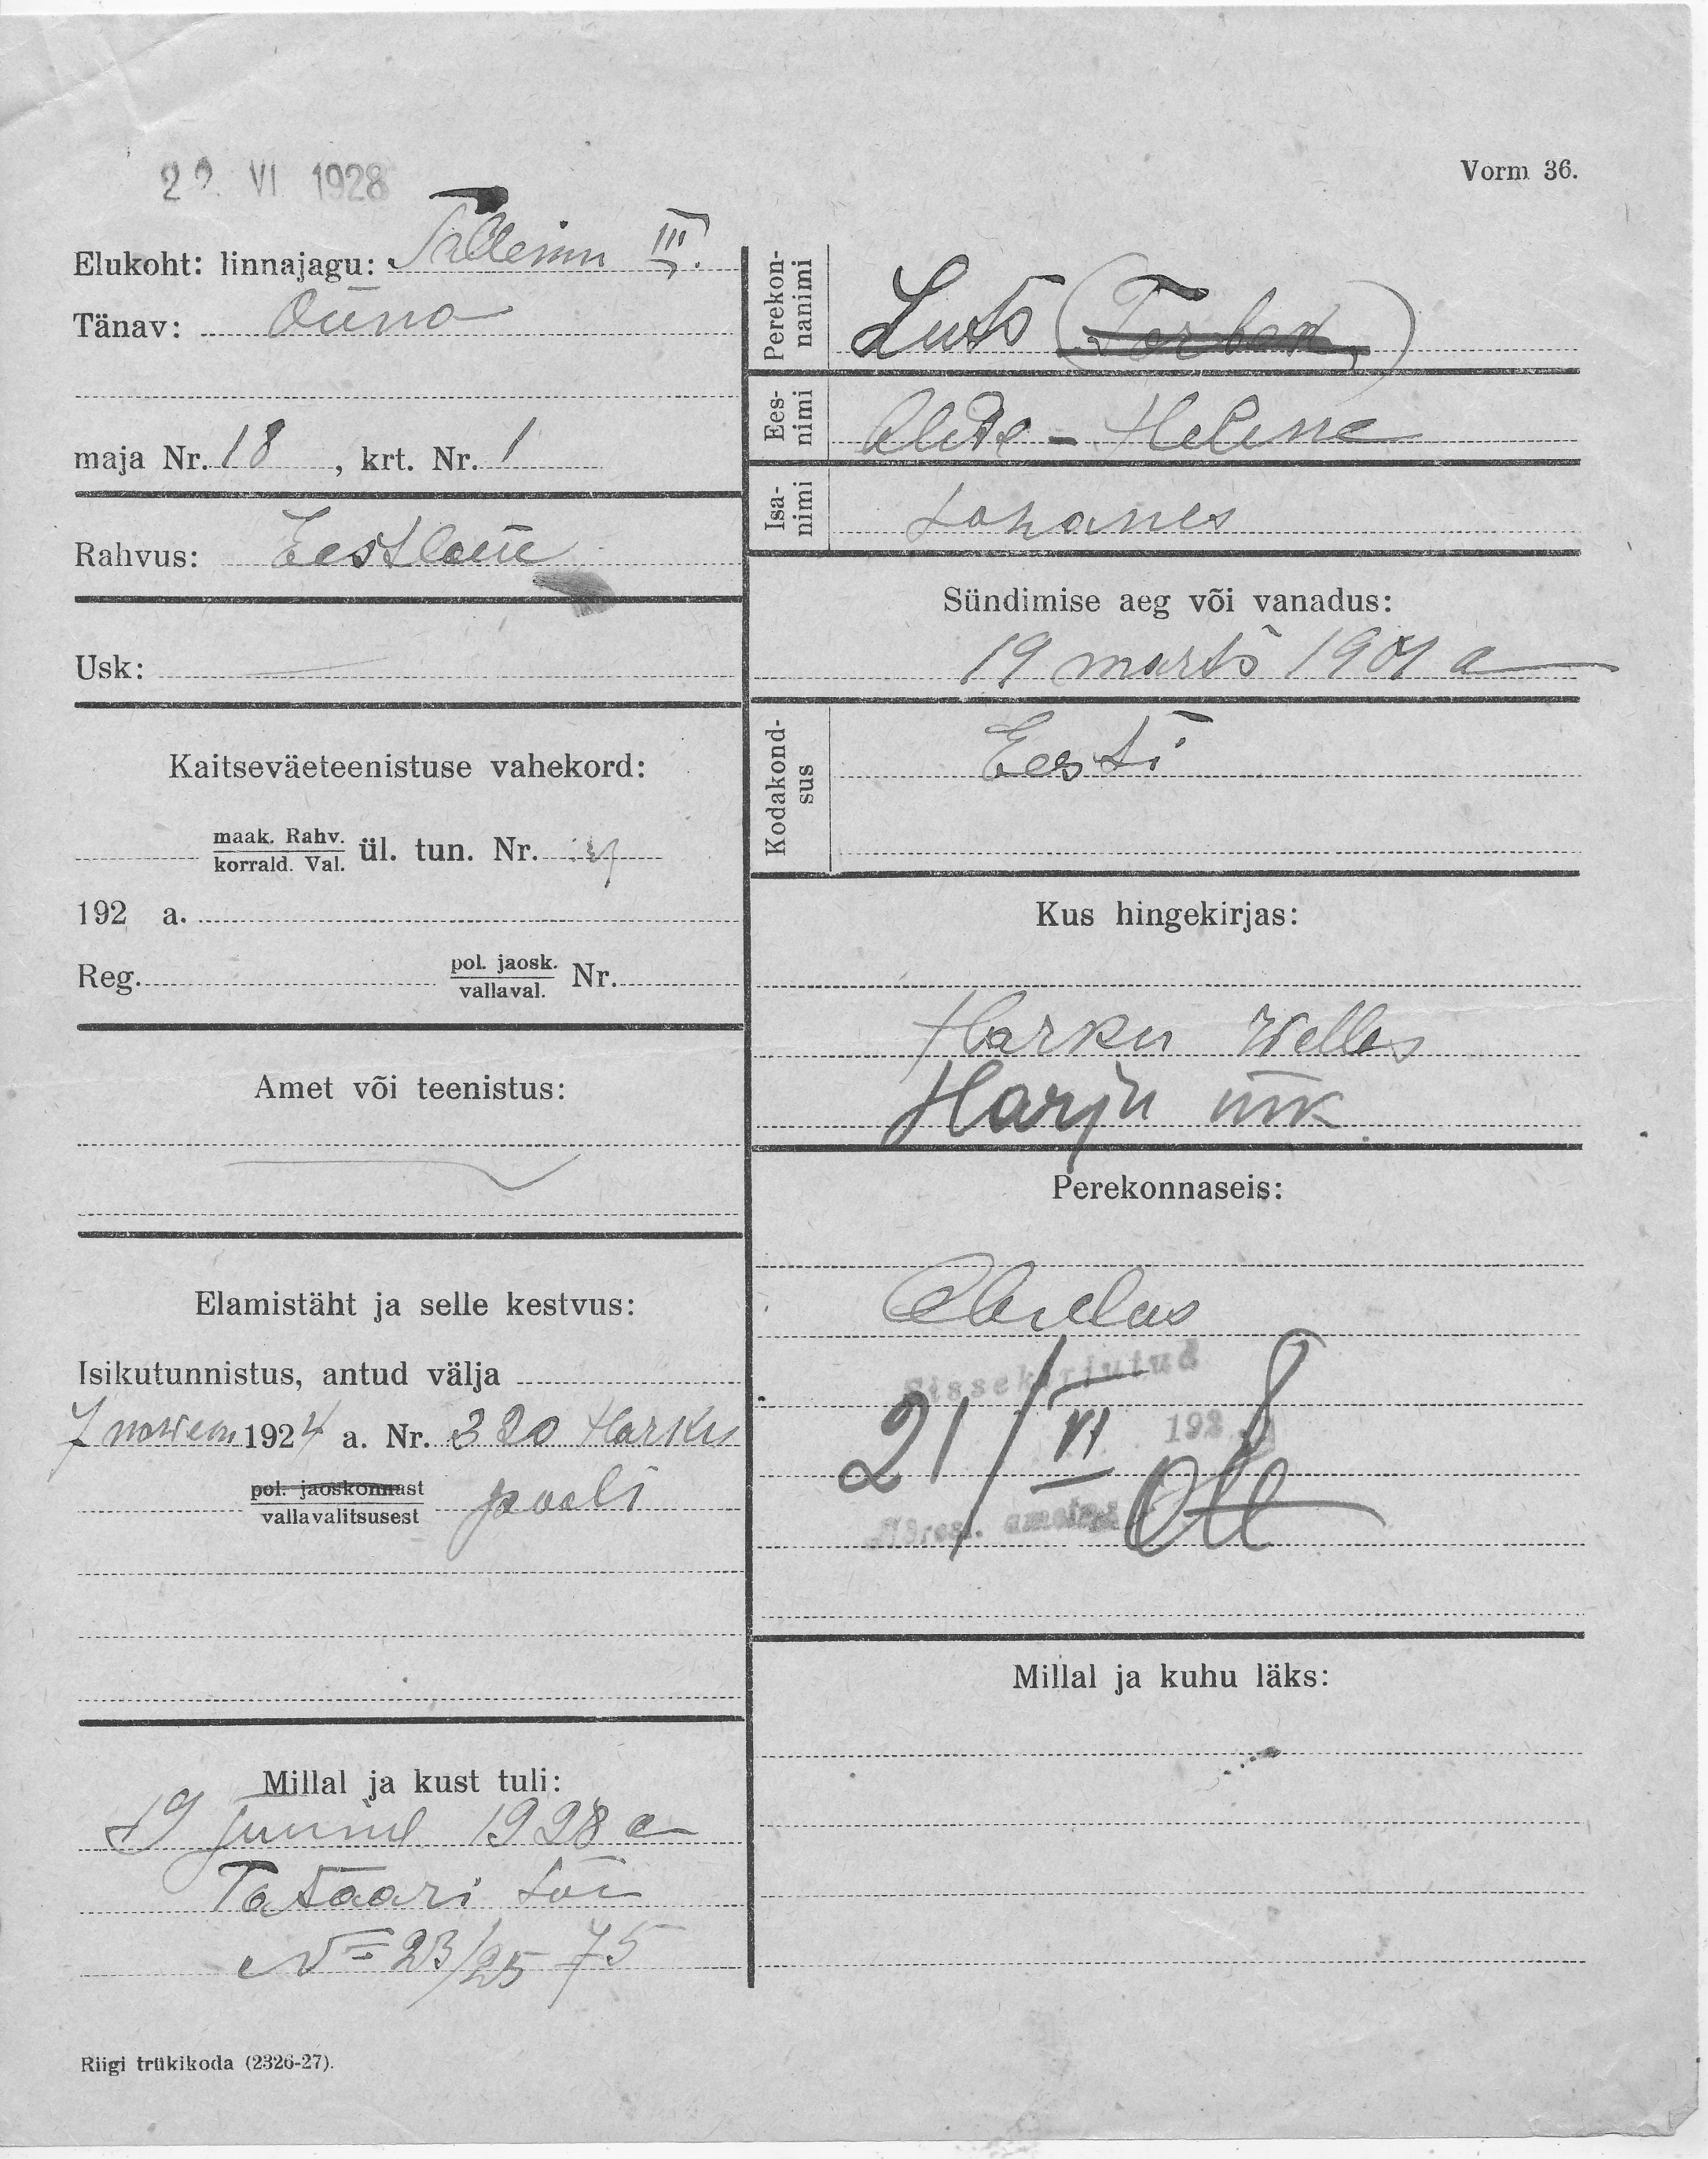 22. VI 1928
Vorm 36.
Elukoht: linnajagu: Tallinn III.
Tänav: Õuna
maja Nr. 18 , krt. Nr. 1
Rahvus: Eestlane
Usk:
Kaitseväeteenistuse vahekord:
maak. Rahv.
korrald. Val. ül. tun. Nr.
192 a.
Reg. pol. jaosk.
vallaval. Nr.
Amet või teenistus:
Elamistäht ja selle kestvus:
Isikutunnistus, antud välja
7 nowem 1924 a. Nr. 320 Harku
pol. jaoskonnast
vallavalitsusest pooli
Millal ja kust tuli:
19 juunil 1928 a
Tataari tän
N= 23/25 75
Riigi trükikoda (2326-27).
Perekon-
nanimi
Luts (Torban)
Ees-
nimi
Alide - Helene
Isa-
nimi
Johanes
Sündimise aeg või vanadus:
19 marts 1901 a
Kodakond-
sus
Eesti
Kus hingekirjas:
Harku Wallas
Harju mk
Perekonnaseis:
Abielus
Sissekirjutud
21/VI 1928
Adress. ametnik
Millal ja kuhu läks: